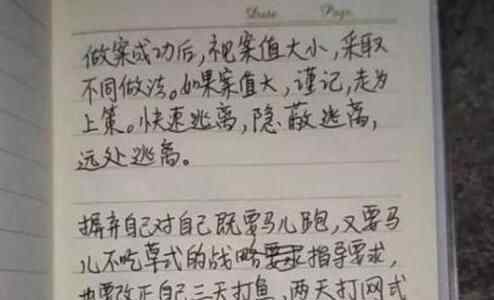 Date Page
做案成功后,视案值大小,采取
不同做法。如果案值大,谨记,走为
上策。快速逃离,隐蔽逃离,
远处逃离。
摒弃自己对自己既要马儿跑,又要马
儿不吃草式的战略要求指导要求,
也要改正自己三天打鱼,两天打网式